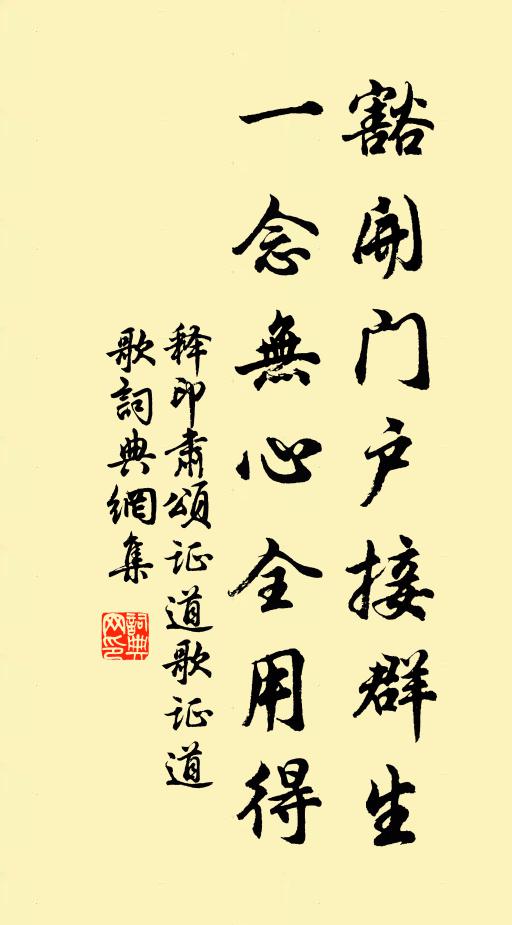 豁開門戶接群生
一念無心全用得
释印肃頌证道歌证道
歌詞典網集
詞典
网印